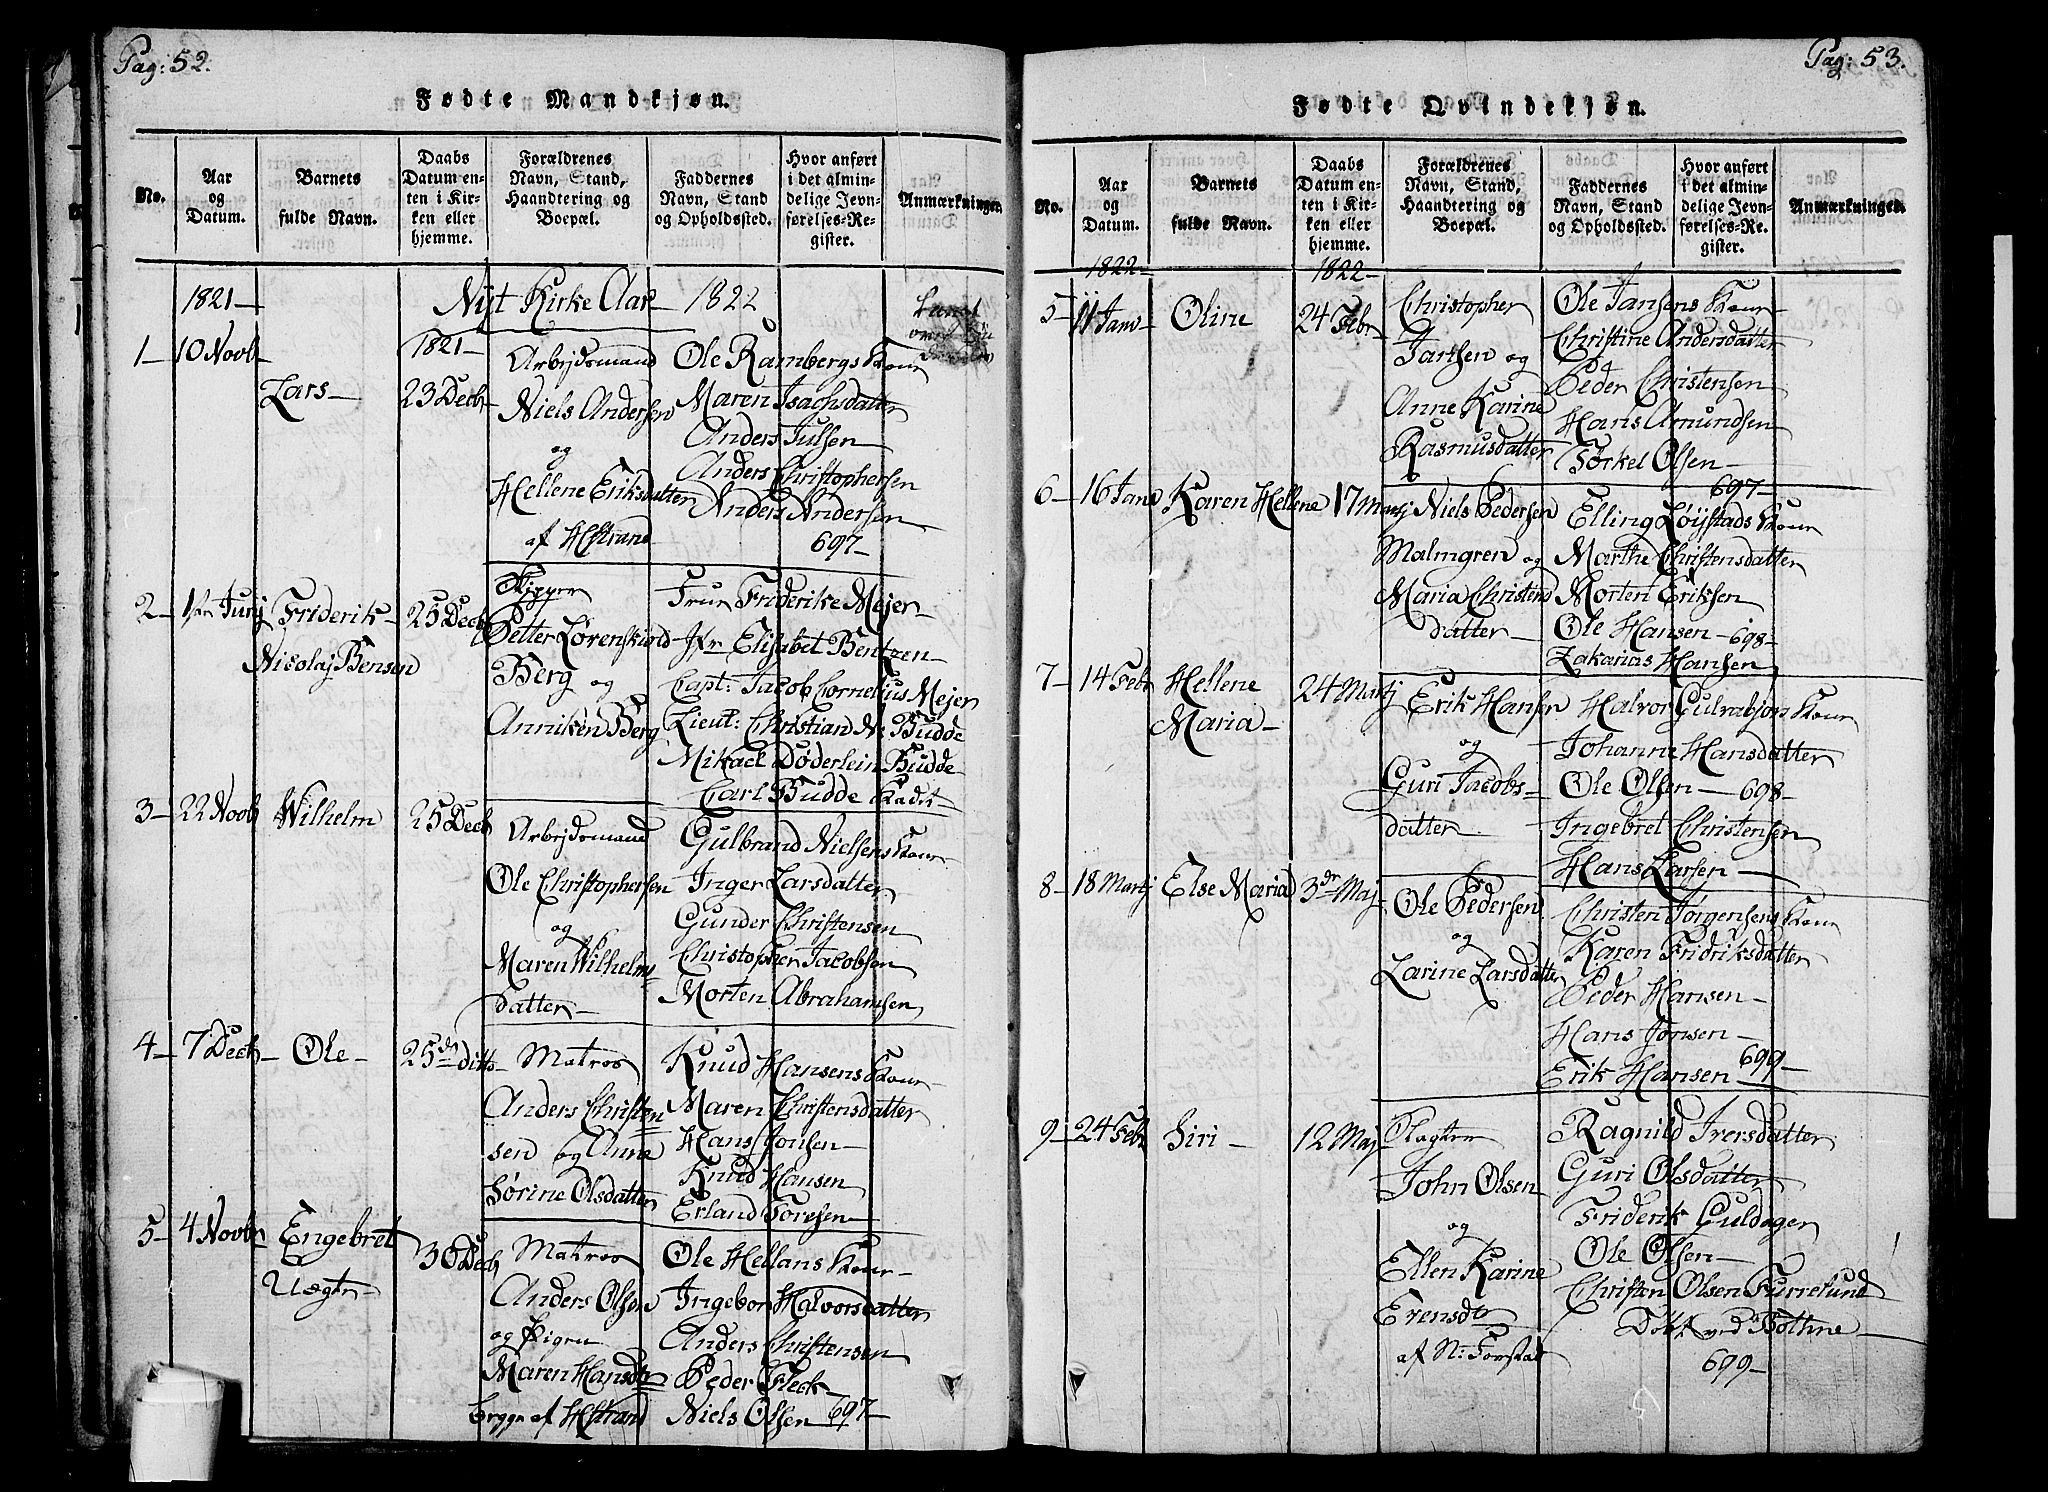 Pag: 52.
Fødte Mandkjøn.
No.
Aar
og
Datum.
Barnets
fulde Navn.
Daabs
Datum en-
ten i Kir-
ken eller
hjemme.
Forældrenes
Navn, Stand,
Haandtering og
Boepæl.
Faddernes
Navn, Stand
og Opholdssted.
Hvor anført
i det almin-
delige Jevn-
førelses-Re-
gister.
Anmærkninger.
Nyt Kirke Aar 1822
1821
1 10 Novb
Lars
1821
23 Decb
Arbejdsmand
Niels Andersen
og
Hellene Eriksdatter
af HStrand
Ole Rambergs Kone
Maren Isachsdatter
Anders Julsen
Anders Christophersen
Anders Andersen
697
2 Junj
Friderik
Nicolaj Bensen
25 Decb
Skipper
Petter Lørenskiold
Berg og
Anniken Berg
Frue Friderike Mejer
Jfr Elisabet Bentzen
Capt: Jacob Cornelius Mejer
Lieut: Christian N: Budde
Mikael Døderlein Budde
Carl Budde Kadet
3 22 Novb
Wilhelm
25 Decb
Arbejdsmand
Ole Christophersen
og
Maren Wilhelms
datter
Gulbrand Nielsens Kone
Inger Larsdatter
Gunder Christensen
Christopher Jacobsen
Morten Abrahamsen
4 7 Decb
Ole
25 de ditto
Matros
Anders Christen
sen og Anne
Sørine Olsdatter
Knud Hansens Kone
Maren Christensdatter
Hans Jonsen
Knud Hansen
Erland Toresen
5 4 Novbr
Engebret
Uægte
30 Decb
Matros
Anders Olsen
og Pigen
Maren Hansdtr
begge af HStrand
Ole Hellans Kone
Ingebor Halvorsdatter
Anders Christensen
Peder Fleck
Niels Olsen 697
Pag: 53.
Fødte Qvindekjøn.
No.
Aar
og
Datum.
Barnets
fulde Navn.
Daabs
Datum en-
ten i Kir-
ken eller
hjemme.
Forældrenes
Navn, Stand,
Haandtering og
Boepæl.
Faddernes
Navn, Stand
og Opholdssted.
Hvor anført
i det almin-
delige Jevn-
førelses-Re-
gister.
Anmærkninger.
1822
1822
5 11 Jan
Oline
24 Febr
Christopher
Jansen og
Anne Karine
Rasmusdatter
Ole Jansens Kone
Christine Andersdatter
Peder Christensen
Hans Amundsen
Törkel Olsen
697
6 16 Jan
Karen Hellene
17 Martj
Niels Pedersen
Malmgren og
Maria Christens
datter
Elling Løystads Kone
Marthe Christensdatter
Morten Eriksen
Ole Hansen 698
Zakarias Hansen
7 14 Febr
Hellene
Maria
24 Martj
Erik Hansen
og
Guri Jacobs
datter
Halvor Gulrabsons Kone
Johanne Hansdatter
Ole Olsen 698
Ingebret Christensen
Hans Larsen
8 18 Martj
Else Maria
3dr Maj
Ole Pedersen
og
Larine Larsdatter
Christen Jørgensens Kone
Karen Fridriksdatter
Peder Hansen
Hans Jonsen
Erik Hansen 699
9 24 Febr
Siri
12 Maj
John Olsen
og
Ellen Karine
Erensdtr
af N: Forstad
Ragnild Iversdatter
Guri Olsdatter
Friderik Guldager
Ole Olsen
Christen Olsen Furrelund
Døbt ved Bothne
699